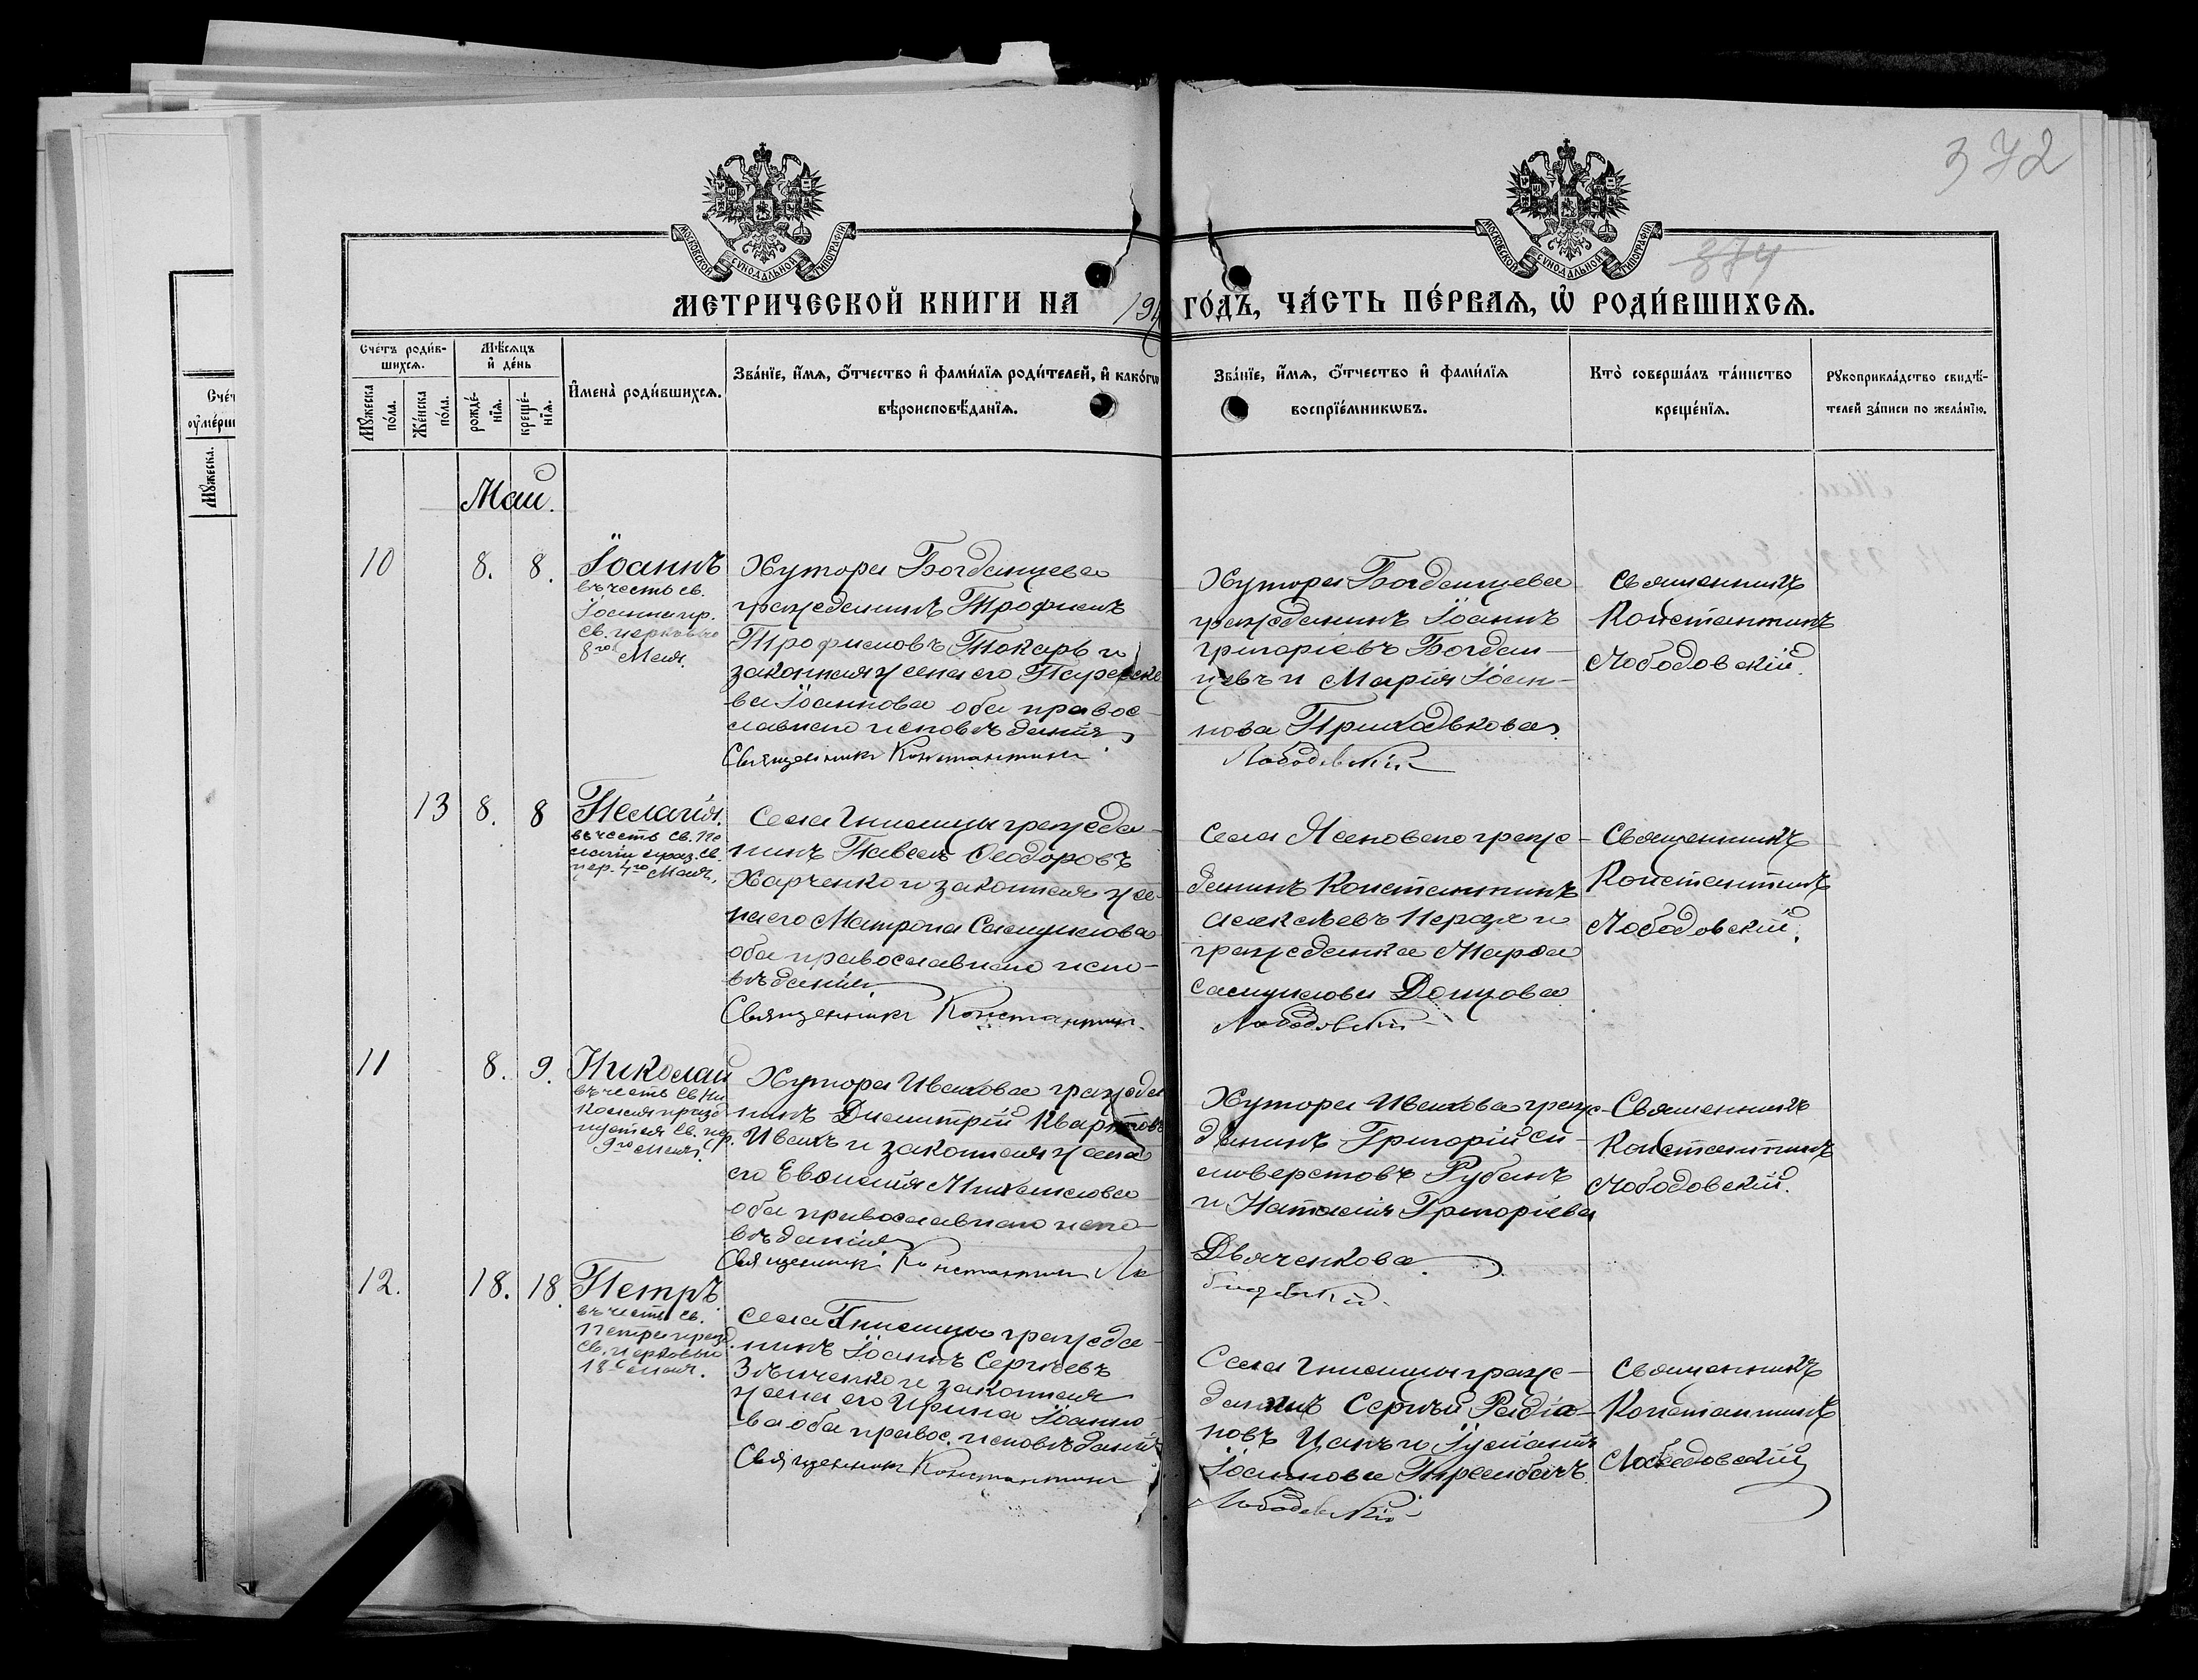 372
374
МОСКОВСКОЙ СѴНОДАЛЬНОЙ ТИПОГРАФІИ
МОСКОВСКОЙ СѴНОДАЛЬНОЙ ТИПОГРАФІИ
МЕТРИЧЕСКОЙ КНИГИ НА 19
ГО́ДЪ, ЧА́СТЬ ПЕ́РВАѦ, Ѡ҆ РОДИ́ВШИХСѦ.
Сче́тъ роди́в-
шихсѧ.
Мꙋ́жеска по́ла.
Же́нска по́ла.
Мѣ́сѧцъ
и҆ де́нь
рожде́-
нїѧ.
креще́-
нїѧ.
И҆мена̀ роди́вшихсѧ.
Зва́нїе, и҆́мѧ, ѻ҆́тчество и҆ фамн́лїѧ роди́телей, и҆ како́гѡ
вѣроисповѣ́данїѧ.
Зва́нїе, и҆́мѧ, ѻ҆́тчество и҆ фами́лїѧ
воспрїе́мникѡвъ.
Кто̀ соверша́лъ та́инство
креще́нїѧ.
Рꙋкоприкла́дство свидѣ́-
телей за́писи по жела́нїю.
Сче́т
ᲂу҆ме́рш
Мꙋ́жеска.
Май.
10
8.
8.
Іоаннъ
въ честь св.
Іоанна пр.
св. церковью
8го Мая.
Хутора Богданцева
гражданинъ Трофимъ
Трофимовъ Токарь и
законная жена его Параске
ва Іоаннова оба правос-
лавнаго исповѣданія
Священникъ Константинъ
Хутора Богданцева
гражданинъ Іоаннъ
Григоріевъ Богдан-
цевъ и Марія Іоан-
нова Приходькова
Лободовскій
Священникъ
Константинъ
Лободовскій.
13
8.
8
Пелагія.
въ честь св. Пе
лагіи праз. св.
цер. 4го Мая.
Села Гнилицы гражда-
нинъ Павелъ Ѳеодоровъ
Харченко и законная же-
на его Матрона Самуилова
оба православнаго испо-
вѣданія.
Священникъ Константинъ
Села Ясеноваго граж-
данинъ Константинъ
Алексѣевъ и
гражданка Марѳа
Самуилова Донцова
Лободовскій
Священникъ
Константинъ
Лободовскій.
11
8.
9.
Николай
въ честь св. Ни
колая празд
нуемая св. цер.
9го Мая.
Хутора Ивахова гражда
нинъ Димитрій Квартовъ
Ивахъ и законная жена
его Евѳимія Михаилова
оба православнаго испо-
вѣданія
Священникъ Константинъ Ло
Хутора Ивахова граж-
данинъ Григорій Си-
льверстовъ Рубанъ
и Наталія Григоріева
Дьяченкова.
бодовскій.
Священникъ
Константинъ
Лободовскій.
12.
18.
18.
Петръ.
въ честь св.
Петра празд.
св. церковью
18го мая.
Села Гнилицы гражда-
нинъ Іоаннъ Сергѣевъ
и законная
жена его Ирина Іоанно-
ва оба правос. исповѣданія
Священникъ Константинъ
Села Гнилицы граж-
данинъ Сергѣй Радіо-
новъ Цапъ и Іуліанія
Іоаннова
Лободовскій
Священникъ
Константинъ
Лободовскій